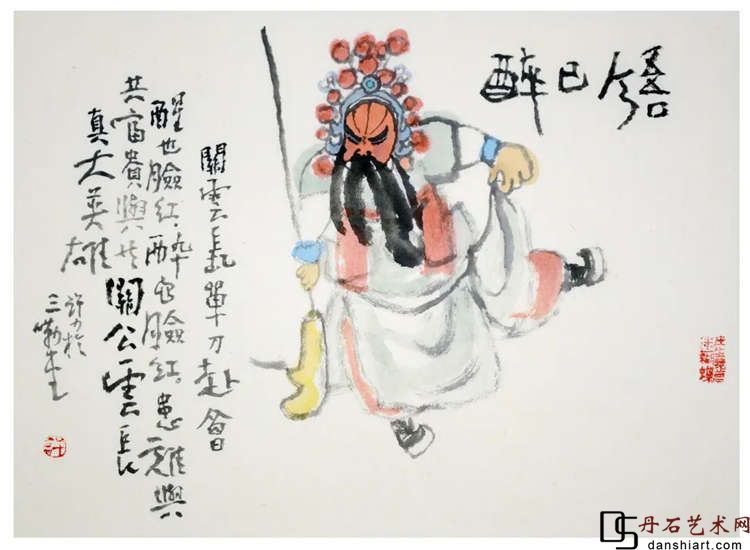 吾今已醉
關雲長單刀赴會
醒也臉紅.醉也臉紅.患難與
共富貴與共關公雲長
真大英雄
許力於
三
許
DS
丹石艺术网
danshiart.com